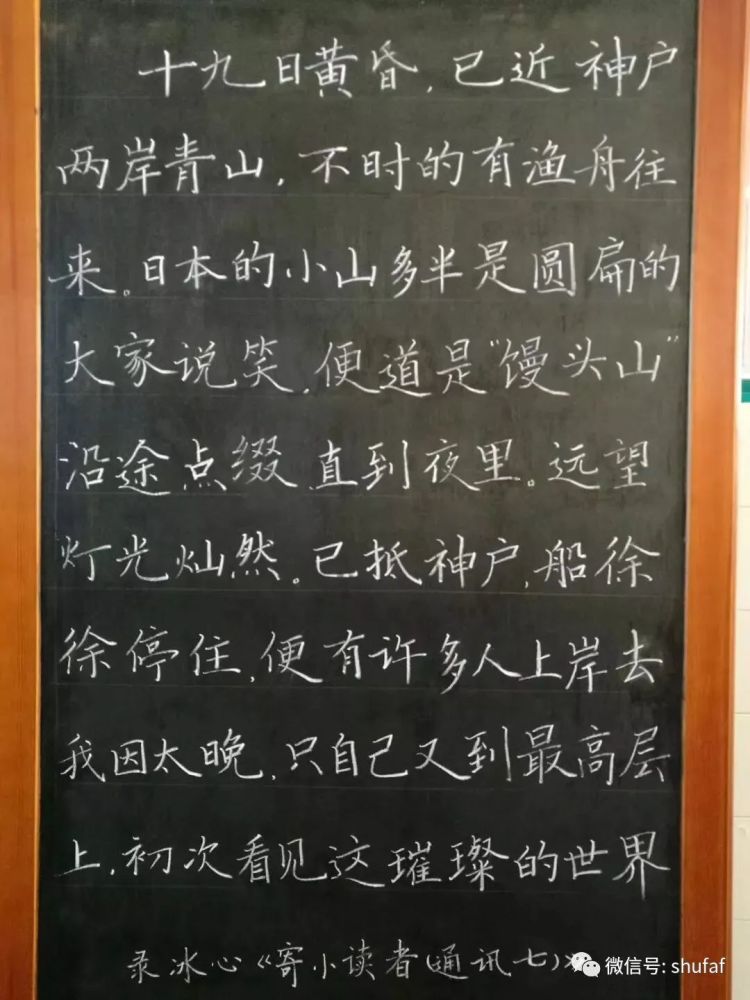 十九日黄昏，已近神户
两岸青山，不时的有渔舟往
来。日本的小山多半是圆扁的
大家说笑，便道是“馒头山”
沿途点缀直到夜里。远望
灯光灿然。已抵神户，船徐
徐停住，便有许多人上岸去
我因太晚，只自己又到最高层
上，初次看见这璀璨的世界
录冰心《寄小读者(通讯七)》
微信号: shufaf